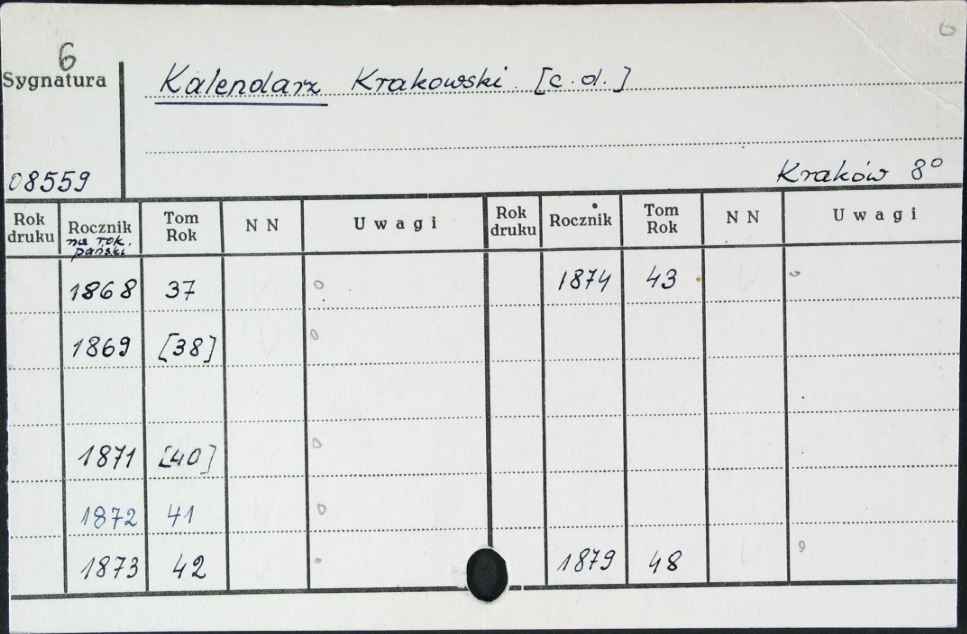 6
6
Sygnatura
Kalendarz Krakowski [c.d.]
08559
Kraków 8º
Rok druku Rocznik Tom Rok N N Uwagi Rok druku Rocznik Tom Rok N N Uwagi
na rok. pański
1868 37 1874 43
1869 [38]
1871 [40]
1872 41
1873 42 1879 48